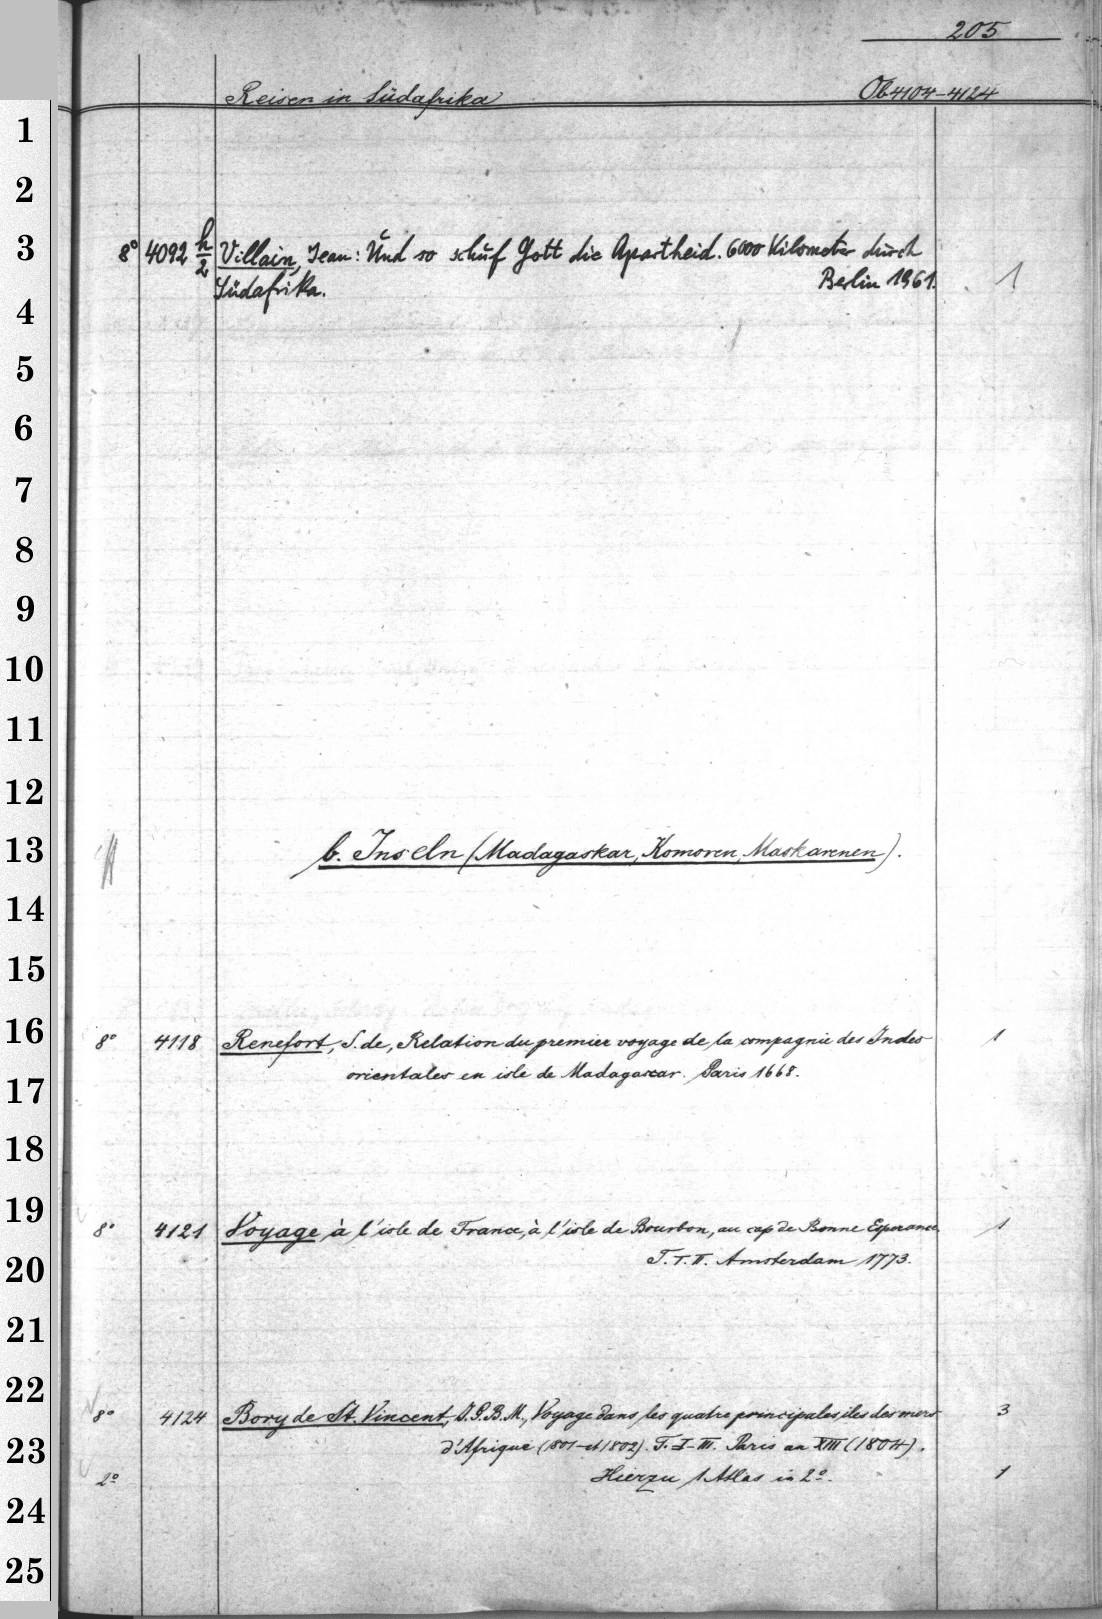 205
Reisen in Südafrika Ob 4104-4124
1
2
3
8° 4092 h/2 Villain, Jean: Und so schuf Gott die Apartheid. 6000 Kilometer durch
Südafrika. Berlin 1961. 1
4
5
6
7
8
9
10
11
12
13
b. Inseln (Madagaskar, Komoren, Maskarenen).
14
15
16
8° 4118 Renefort, S. de, Relation du premier voyage de la compagnie des Indes 1
orientales en isle de Madagascar. Paris 1668.
17
18
19
8° 4121 Voyage à l'isle de France, à l'isle de Bourbon, au cap de Bonne Esperance 1
T. I. II. Amsterdam 1773.
20
21
22
8° 4124 Bory de St. Vincent, J.G.B.M., Voyage dans les quatre principales iles des mers 3
d'Afrique (1801-et 1802). T. I-III. Paris an XIII (1804).
23
2° Hierzu 1 Atlas in 2°. 1
24
25